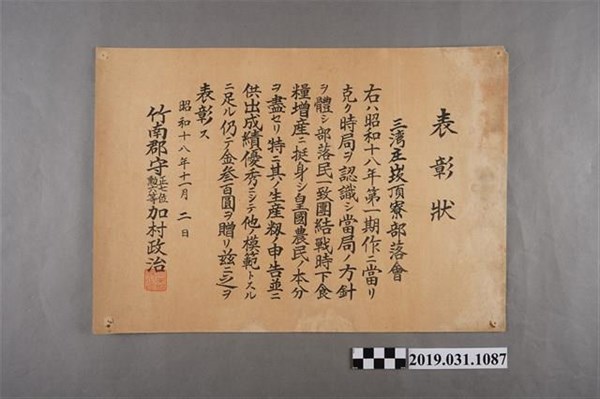 表彰狀
三湾庄崁頂寮部落會
右ハ昭和十八年第一期作ニ當リ
克ク時局ヲ認識シ當局ノ方針
ヲ體シ部落民一致團結戰時下食
糧增産ニ挺身シ皇國農民ノ本分
ヲ盡セリ特ニ其ノ生産籾ノ申告並ニ
供出成績優秀ニシテ他ノ模範トスル
ニ足ル仍テ金叁百圓ヲ贈リ玆ニ之ヲ
表彰ス
昭和十八年十一月二日
竹南郡守正七位勲六等加村政治
2019.031.1087